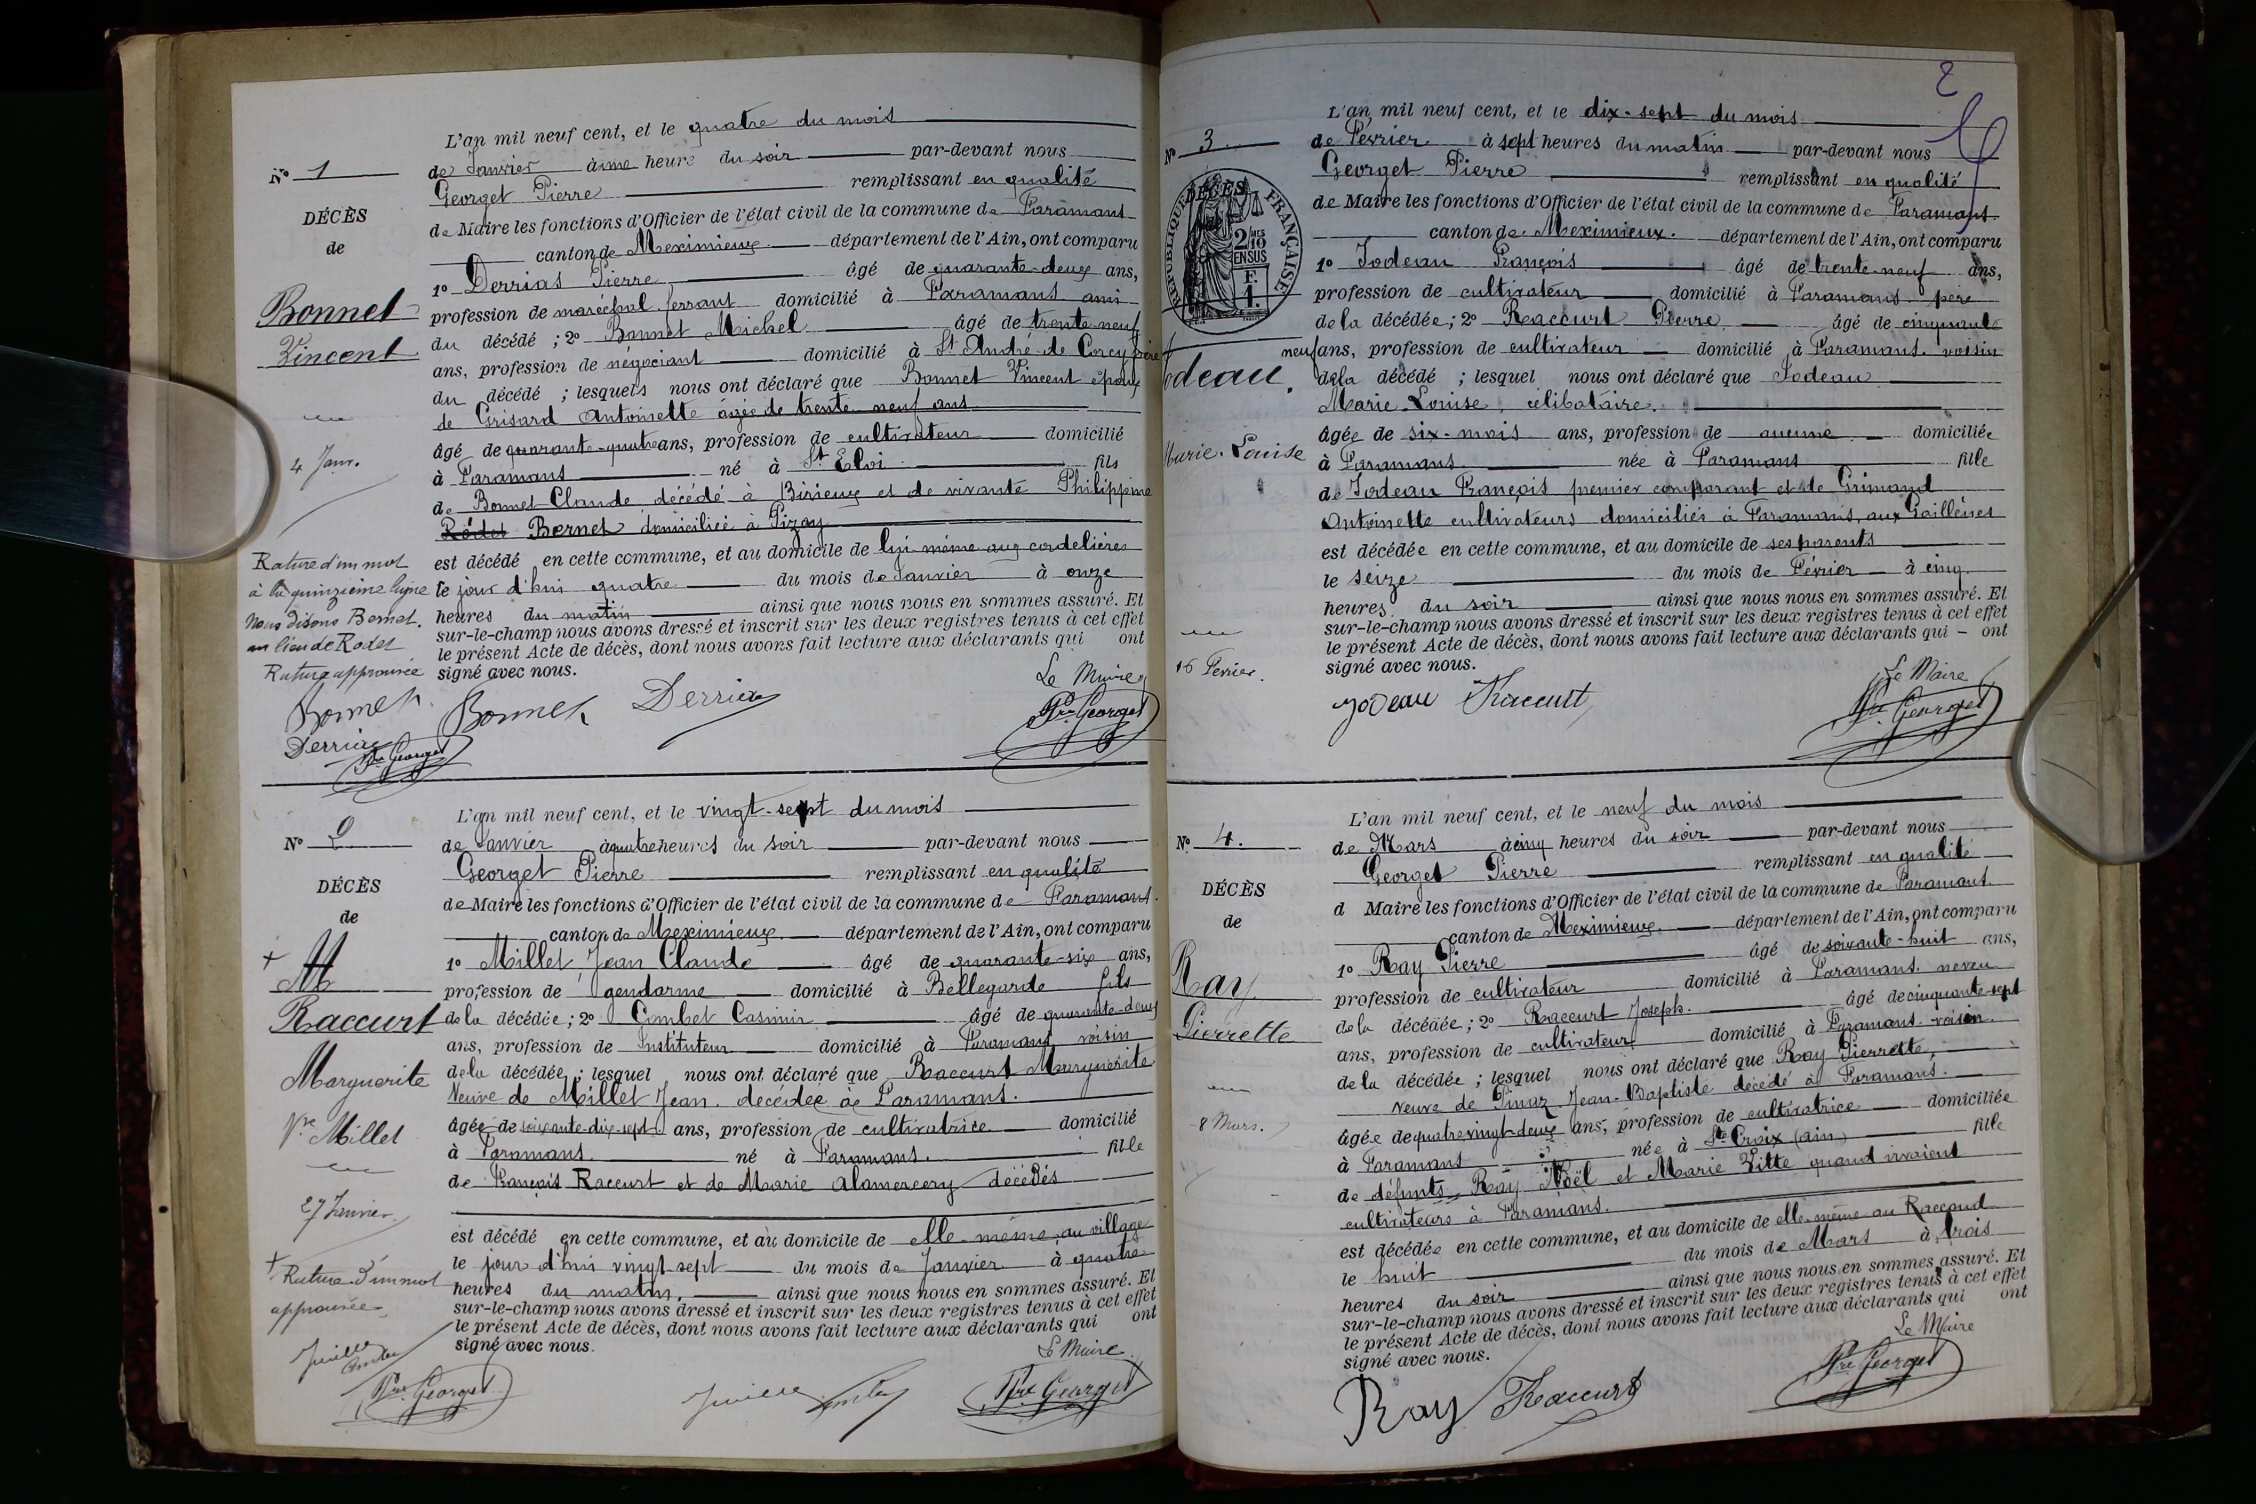 L'an mil neuf cent, et le quatre du mois
N° 1
de Janvier à une heure du soir par-devant nous
Georget Pierre remplissant en qualité
DÉCÈS
de Maire les fonctions d'Officier de l'état civil de la commune de Faramans
de
canton de Meximieux département de l'Ain, ont comparu
1° Derrias Pierre âgé de quarante-deux ans,
Bonnet
profession de maréchal ferrant domicilié à Faramans ami
Vincent
du décédé ; 2° Bonnet Michel âgé de trente-neuf
ans, profession de négociant domicilié à St André de Corcy frère
du décédé ; lesquels nous ont déclaré que Bonnet Vincent époux
de Grisard Antoinette âgée de trente neuf ans
4 Janv.
âgé de quarante-quatre ans, profession de cultivateur domicilié
à Faramans né à St Eloi fils
de Bonnet Claude décédé à Birieux et de vivante Philippine
Rodet Bernet domiciliée à Pizay
est décédé en cette commune, et au domicile de lui même aux cordelières
le jour d'hui quatre du mois de Janvier à onze
heures du matin ainsi que nous nous en sommes assuré. Et
sur-le-champ nous avons dressé et inscrit sur les deux registres tenus à cet effet
le présent Acte de décès, dont nous avons fait lecture aux déclarants qui ont
signé avec nous.
Rature d'un mot
à la quinzième ligne
Nous disons Bernet
au lieu de Rodet
Rature approuvée
Le Maire
Bonnet Bonnet Derrias Pre Georget
Derrias
Pre Georget
L'an mil neuf cent, et le vingt-sept du mois
N° 2
de Janvier à quatre heures du soir par-devant nous
Georget Pierre remplissant en qualité
DÉCÈS
de Maire les fonctions d'Officier de l'état civil de la commune de Faramans
de
canton de Meximieux département de l'Ain, ont comparu
+ M
1° Millet Jean Claude âgé de quarante-six ans,
profession de gendarme domicilié à Bellegarde fils
Raccurt
de la décédée ; 2° Combet Casimir âgé de quarante-deux
ans, profession de Instituteur domicilié à Faramans voisin
Marguerite
de la décédée ; lesquel nous ont déclaré que Raccurt Marguerite
Veuve de Millet Jean. décédée à Faramans.
Vve Millet
âgée de soixante-dix-sept ans, profession de cultivatrice domicilié
à Faramans né à Faramans. fille
de François Raccurt et de Marie Alamercery décédés
27 Janvier
est décédé en cette commune, et au domicile de elle-même, au village
le jour d'hui vingt-sept du mois de Janvier à quatre
heures du matin. ainsi que nous nous en sommes assuré. Et
sur-le-champ nous avons dressé et inscrit sur les deux registres tenus à cet effet
le présent Acte de décès, dont nous avons fait lecture aux déclarants qui ont
signé avec nous.
+ Rature d'un mot
approuvée
Le Maire
Pre Georget Pre Georget
2
L'an mil neuf cent, et le dix-sept du mois
N° 3
de Février à sept heures du matin par-devant nous
Georget Pierre remplissant en qualité
DÉCÈS
RÉPUBLIQUE FRANÇAISE
2/10 MES
EN SUS
F.
1.
de Maire les fonctions d'Officier de l'état civil de la commune de Faramans
canton de Meximieux. département de l'Ain, ont comparu
1° Jodeau François âgé de trente-neuf ans,
profession de cultivateur domicilié à Faramans père
de la décédée ; 2° Raccurt Pierre âgé de cinquante
neuf ans, profession de cultivateur domicilié à Faramans. voisin
odeau.
de la décédé ; lesquel nous ont déclaré que Jodeau
Marie-Louise, célibataire.
âgée de six-mois ans, profession de aucune domiciliée
Marie-Louise
à Faramans née à Faramans fille
de Jodeau François premier comparant et de Grimand
Antoinette cultivateurs domiciliés à Faramans, aux
est décédée en cette commune, et au domicile de ses parents
le seize du mois de Février à cinq
heures du soir ainsi que nous nous en sommes assuré. Et
sur-le-champ nous avons dressé et inscrit sur les deux registres tenus à cet effet
le présent Acte de décès, dont nous avons fait lecture aux déclarants qui ont
signé avec nous.
16 Fevrier.
Le Maire
Jodeau Raccurt Pre Georget
L'an mil neuf cent, et le neuf du mois
N° 4.
de Mars à cinq heures du soir par-devant nous
Georget Pierre remplissant en qualité
DÉCÈS
d Maire les fonctions d'Officier de l'état civil de la commune de Faramans
de
canton de Meximieux. département de l'Ain, ont comparu
1° Ray Pierre âgé de soixante-huit ans,
Ray
profession de cultivateur domicilié à Faramans. neveu
de la décédée ; 2° Raccurt Joseph. âgé de cinquante-sept
Pierrette
ans, profession de cultivateur domicilié à Faramans. voisin.
de la décédée ; lesquel nous ont déclaré que Ray Pierrette,
Veuve de Pinaz Jean-Baptiste décédé à Faramans.
8 Mars.
âgée de quatrevingt-deux ans, profession de cultivatrice domiciliée
à Faramans née à Ste Croix (ain) fille
de défunts Ray Noël et Marie Vitte quand vivaient
cultivateurs à Faramans.
est décédée en cette commune, et au domicile de elle-même au Raccand
le huit du mois de Mars à trois
heures du soir ainsi que nous nous en sommes assuré. Et
sur-le-champ nous avons dressé et inscrit sur les deux registres tenus à cet effet
le présent Acte de décès, dont nous avons fait lecture aux déclarants qui ont
signé avec nous.
Le Maire
Ray Raccurt Pre Georget